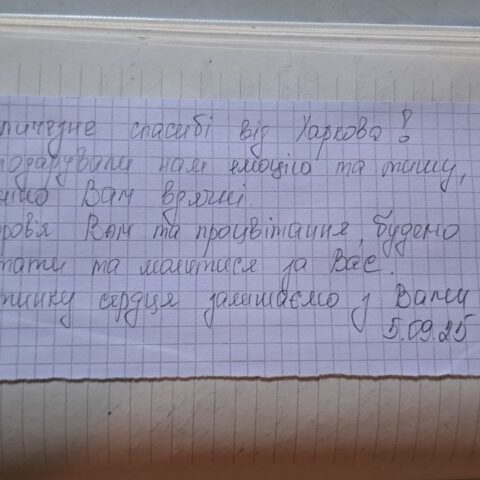 личезне спасибі від Харкова!
подарували нам емоцію та тишу,
Вам вдячні.
ров'я Вам та процвітання, будемо
тати та молитися за Вас.
тинку сердця залишаємо з Вами
5.09.25